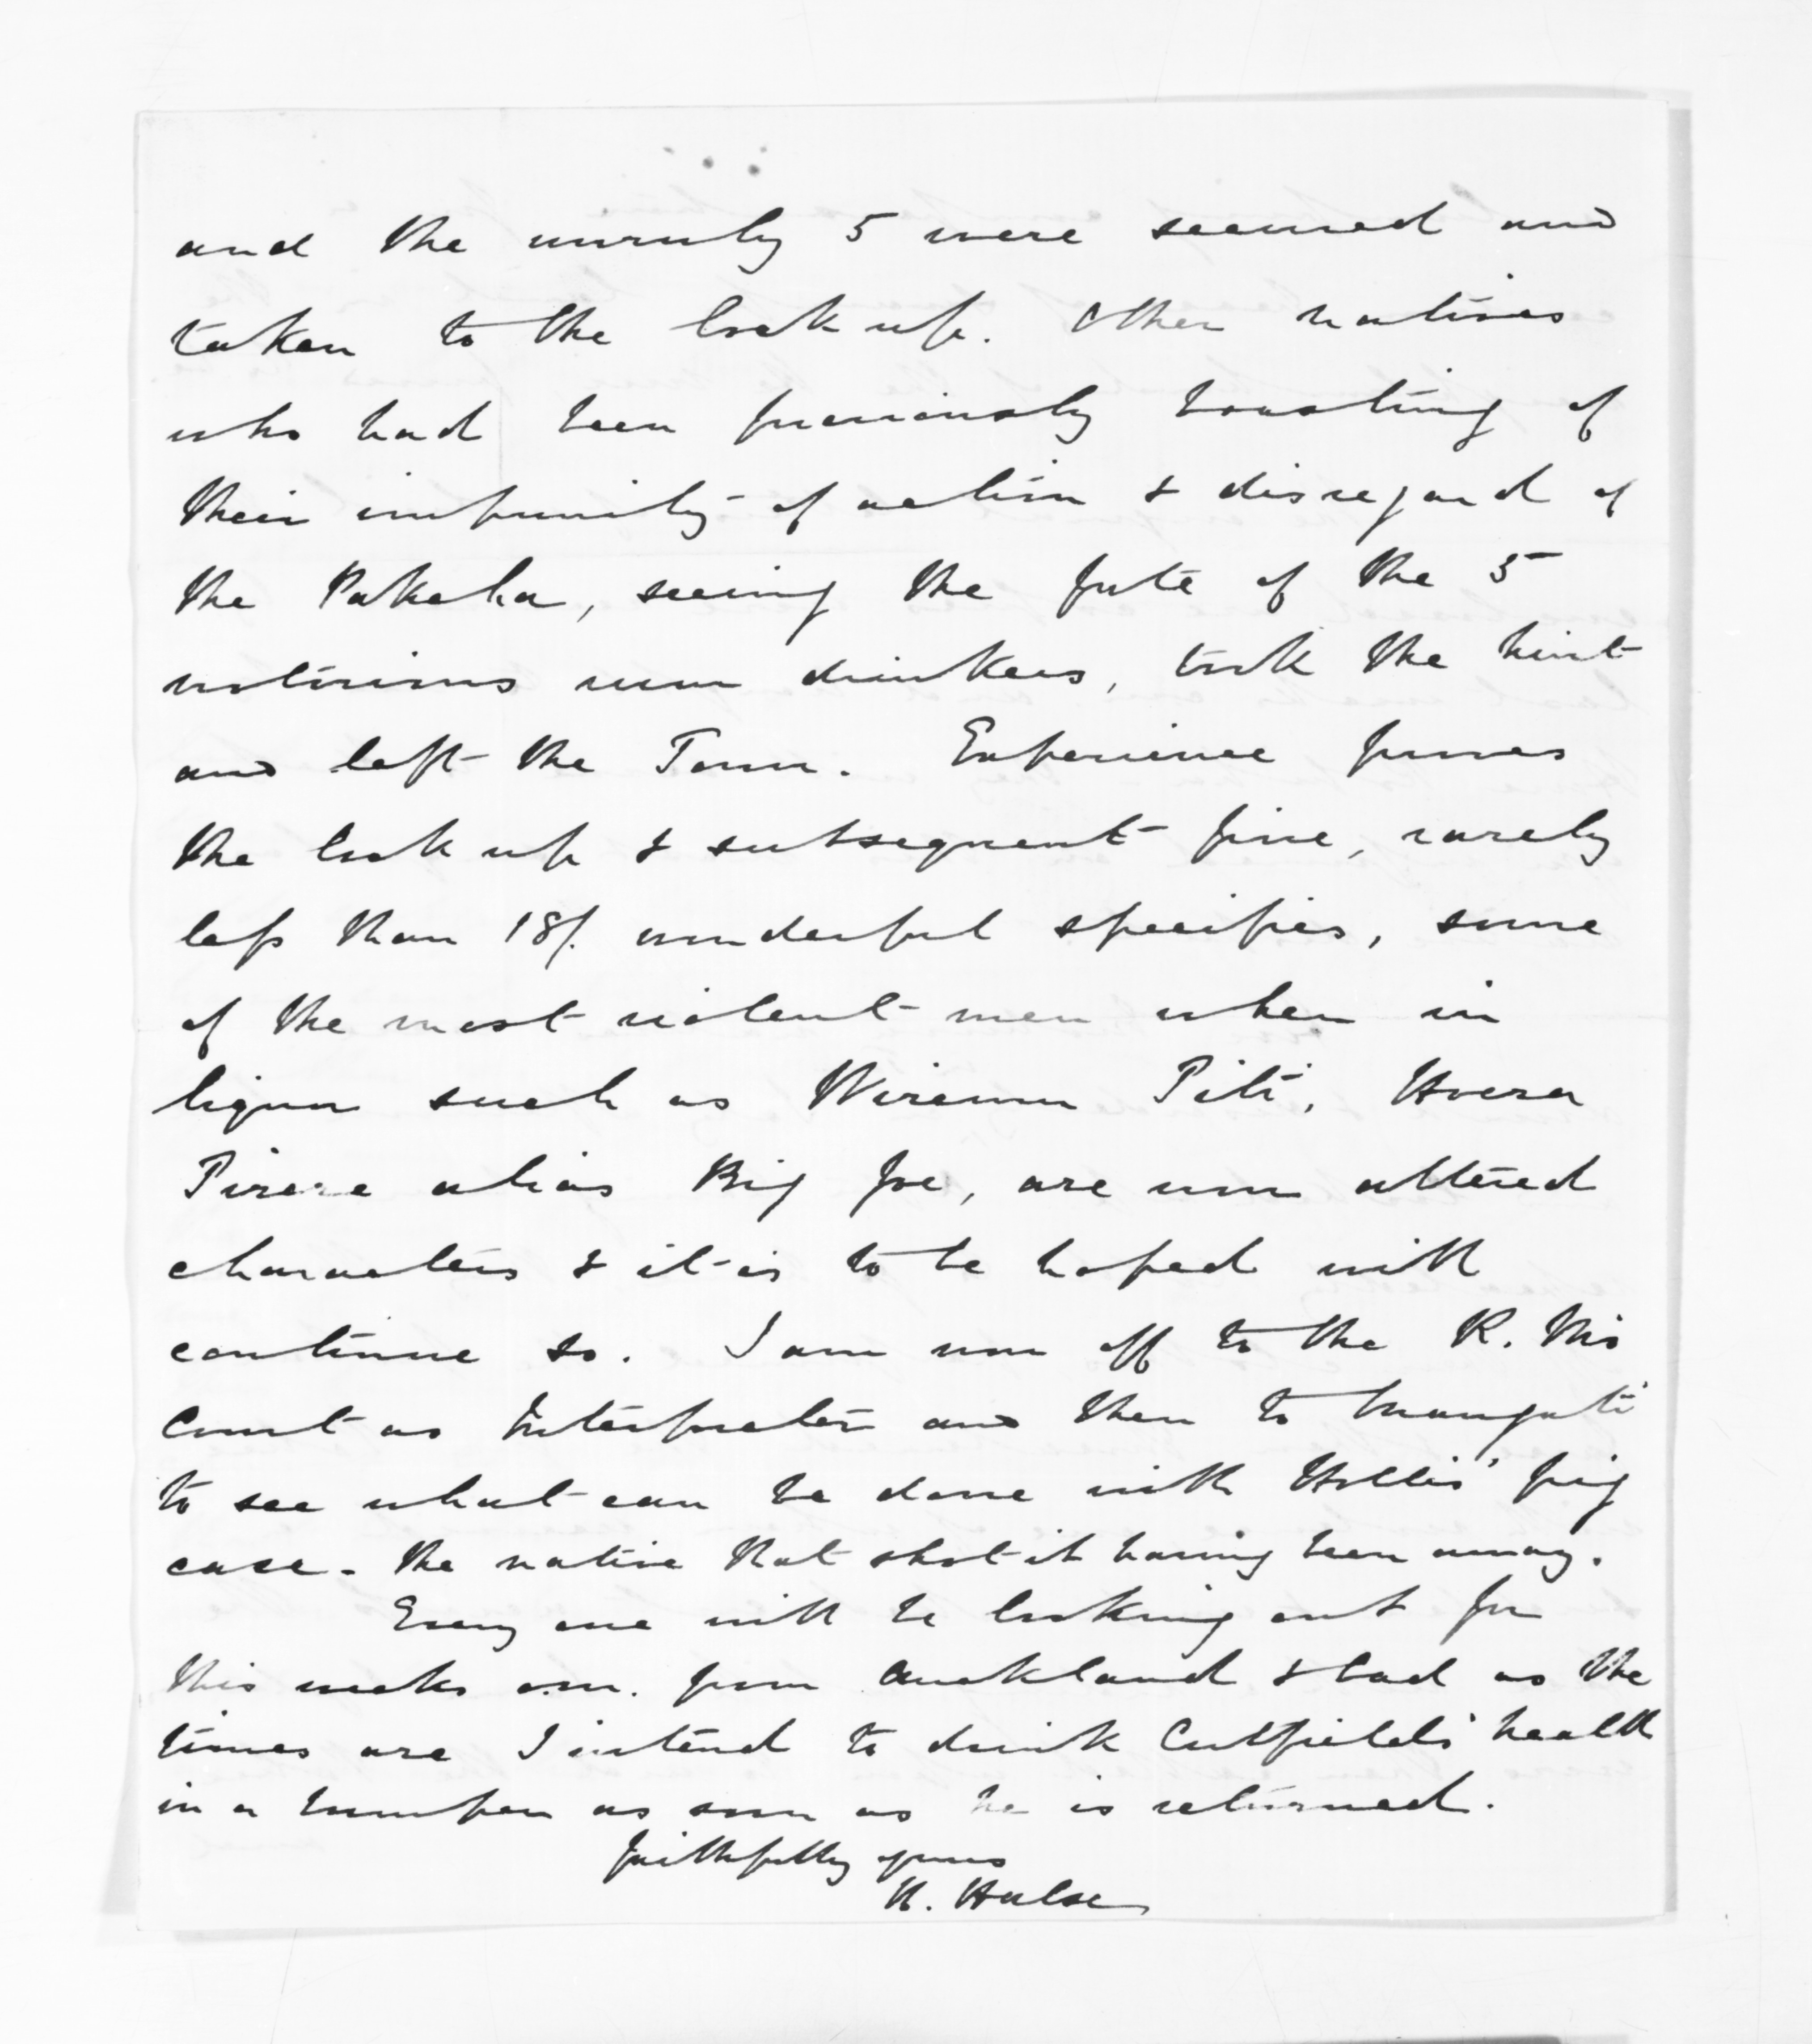 and the unruly 5 were secured and
taken to the lock up. Other natives
who had been previously boasting of
their impunity of action & disregard of
the Pakeha, seeing the fate of the 5
notorious rum drinkers, took the hint
and left the Town. Experience proves
the lock up & subsequent fine, rarely
less than 18/. wonderful specifics, some
of the most violent men when in
liquor such as Wiremu Piti, Hoera
Pirere alias Big Joe, are now altered
characters & it is to be hoped will
continue so. I am now off to the R. M's
Court as Interpreter and then to
to see what can be done with Hollis' pig
case - the native that shot it having been away.
Every one will be looking out for
this weeks o.m. from Auckland & bad as the
times are I intend to drink Cutfield's health
in a bumper as soon as he is returned.
Faithfully yours
H. Halse